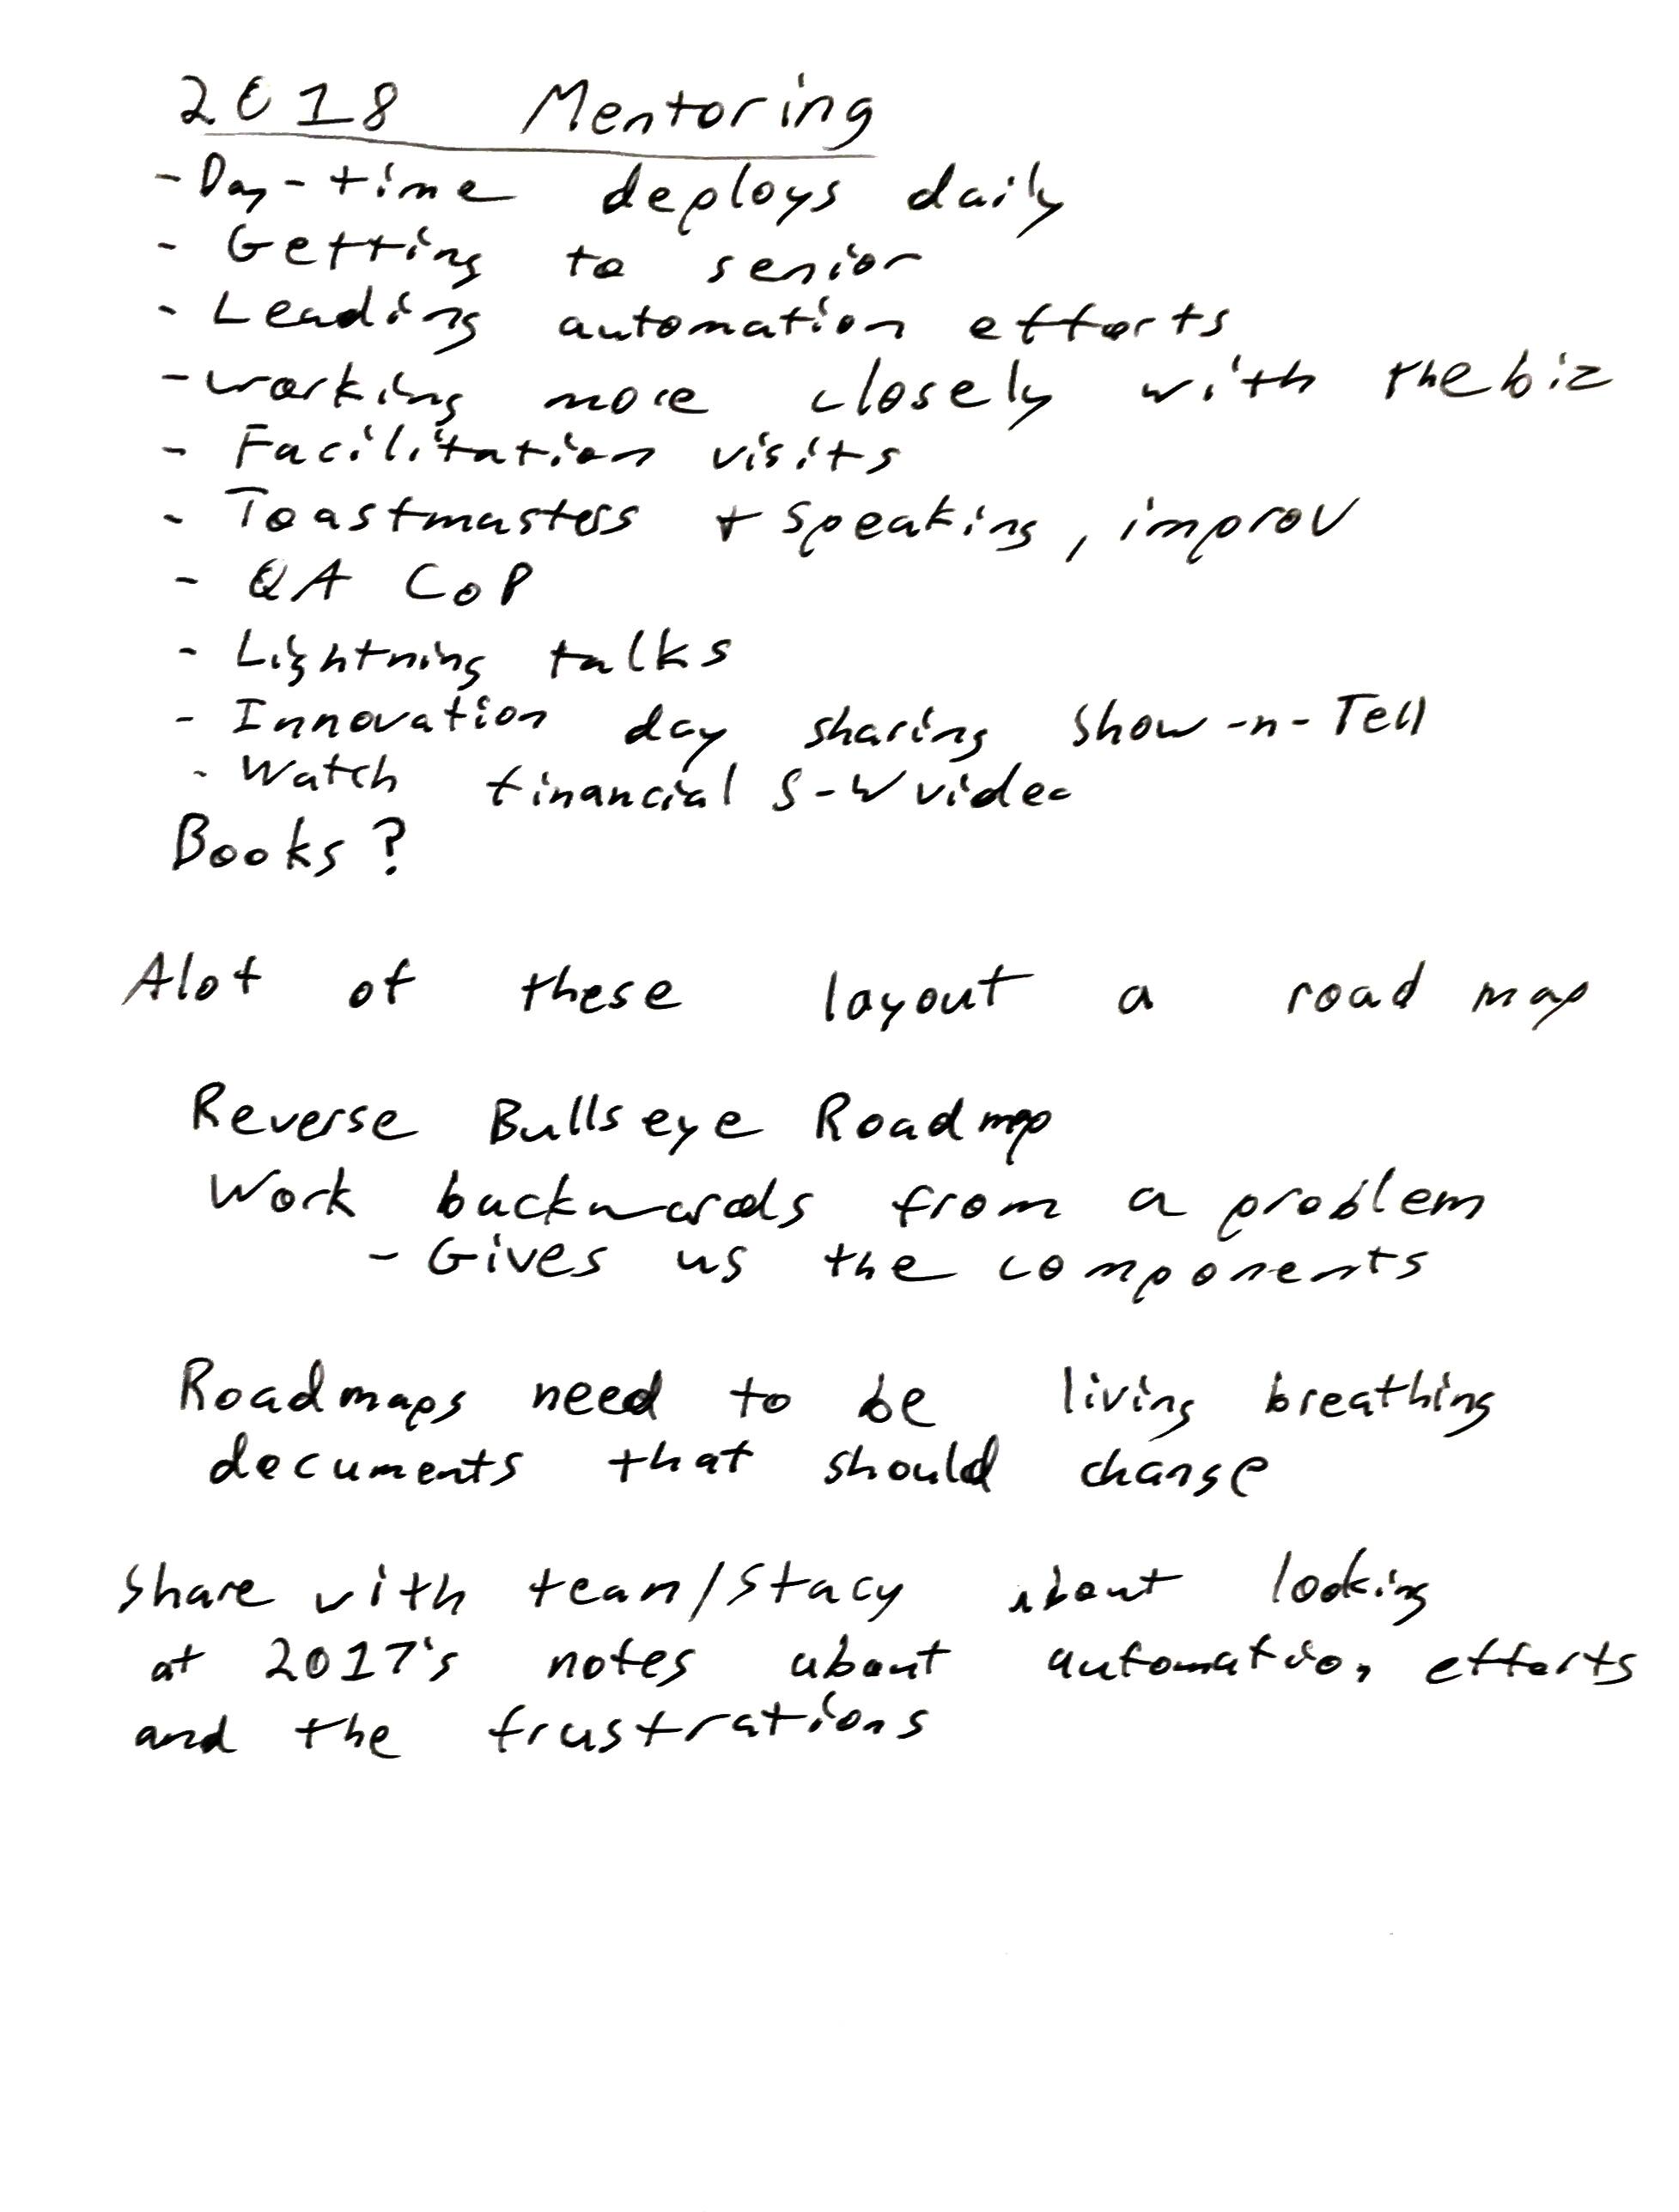 2018 Mentoring
- Day-time deploys daily
- Getting to senior
- Leading automation efforts
- working more closely with the biz
- Facilitation visits
- Toastmasters + Speaking, improv
- QA CoP
- Lightning talks
- Innovation day sharing Show-n-Tell
- Watch financial S-W video
Books?
Alot of these layout a road map
Reverse Bullseye Roadmap
Work backwards from a problem
- Gives us the components
Roadmaps need to be living breathing
documents that should change
Share with team/Stacy about looking
at 2017's notes about automation efforts
and the frustrations